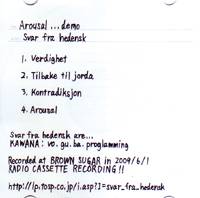 Arousal ...demo
Svar fra hedensk
1. Verdighet
2. Tilbake til jorda
3. Kontradiksjon
4. Arousal
Svar fra hedensk are...
KAWANA: vo. gu. ba. proglamming
Recorded at BROWN SUGAR in 2009/6/1
RADIO CASSETTE RECORDING!!
http://lp.tosp.co.jp/i.asp?I=svar_fra_hedensk